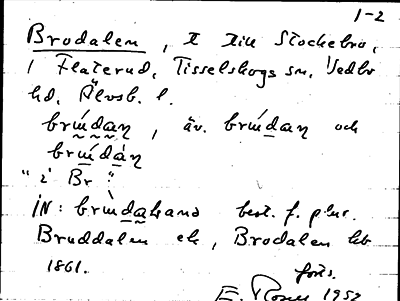 1-2
Brodalen, I till Stockebro,
i Flaterud, Tisselskogs sn, Vedbo
hd, Älvsb. l.
brúdaṇ, äv. brúdaṇ och
brúdàṇ
"i Br"
IN: brúdakana best. f. plur.
Bruddalen ek, Brodalen hb
1861.
forts.
E. Rosell 1952